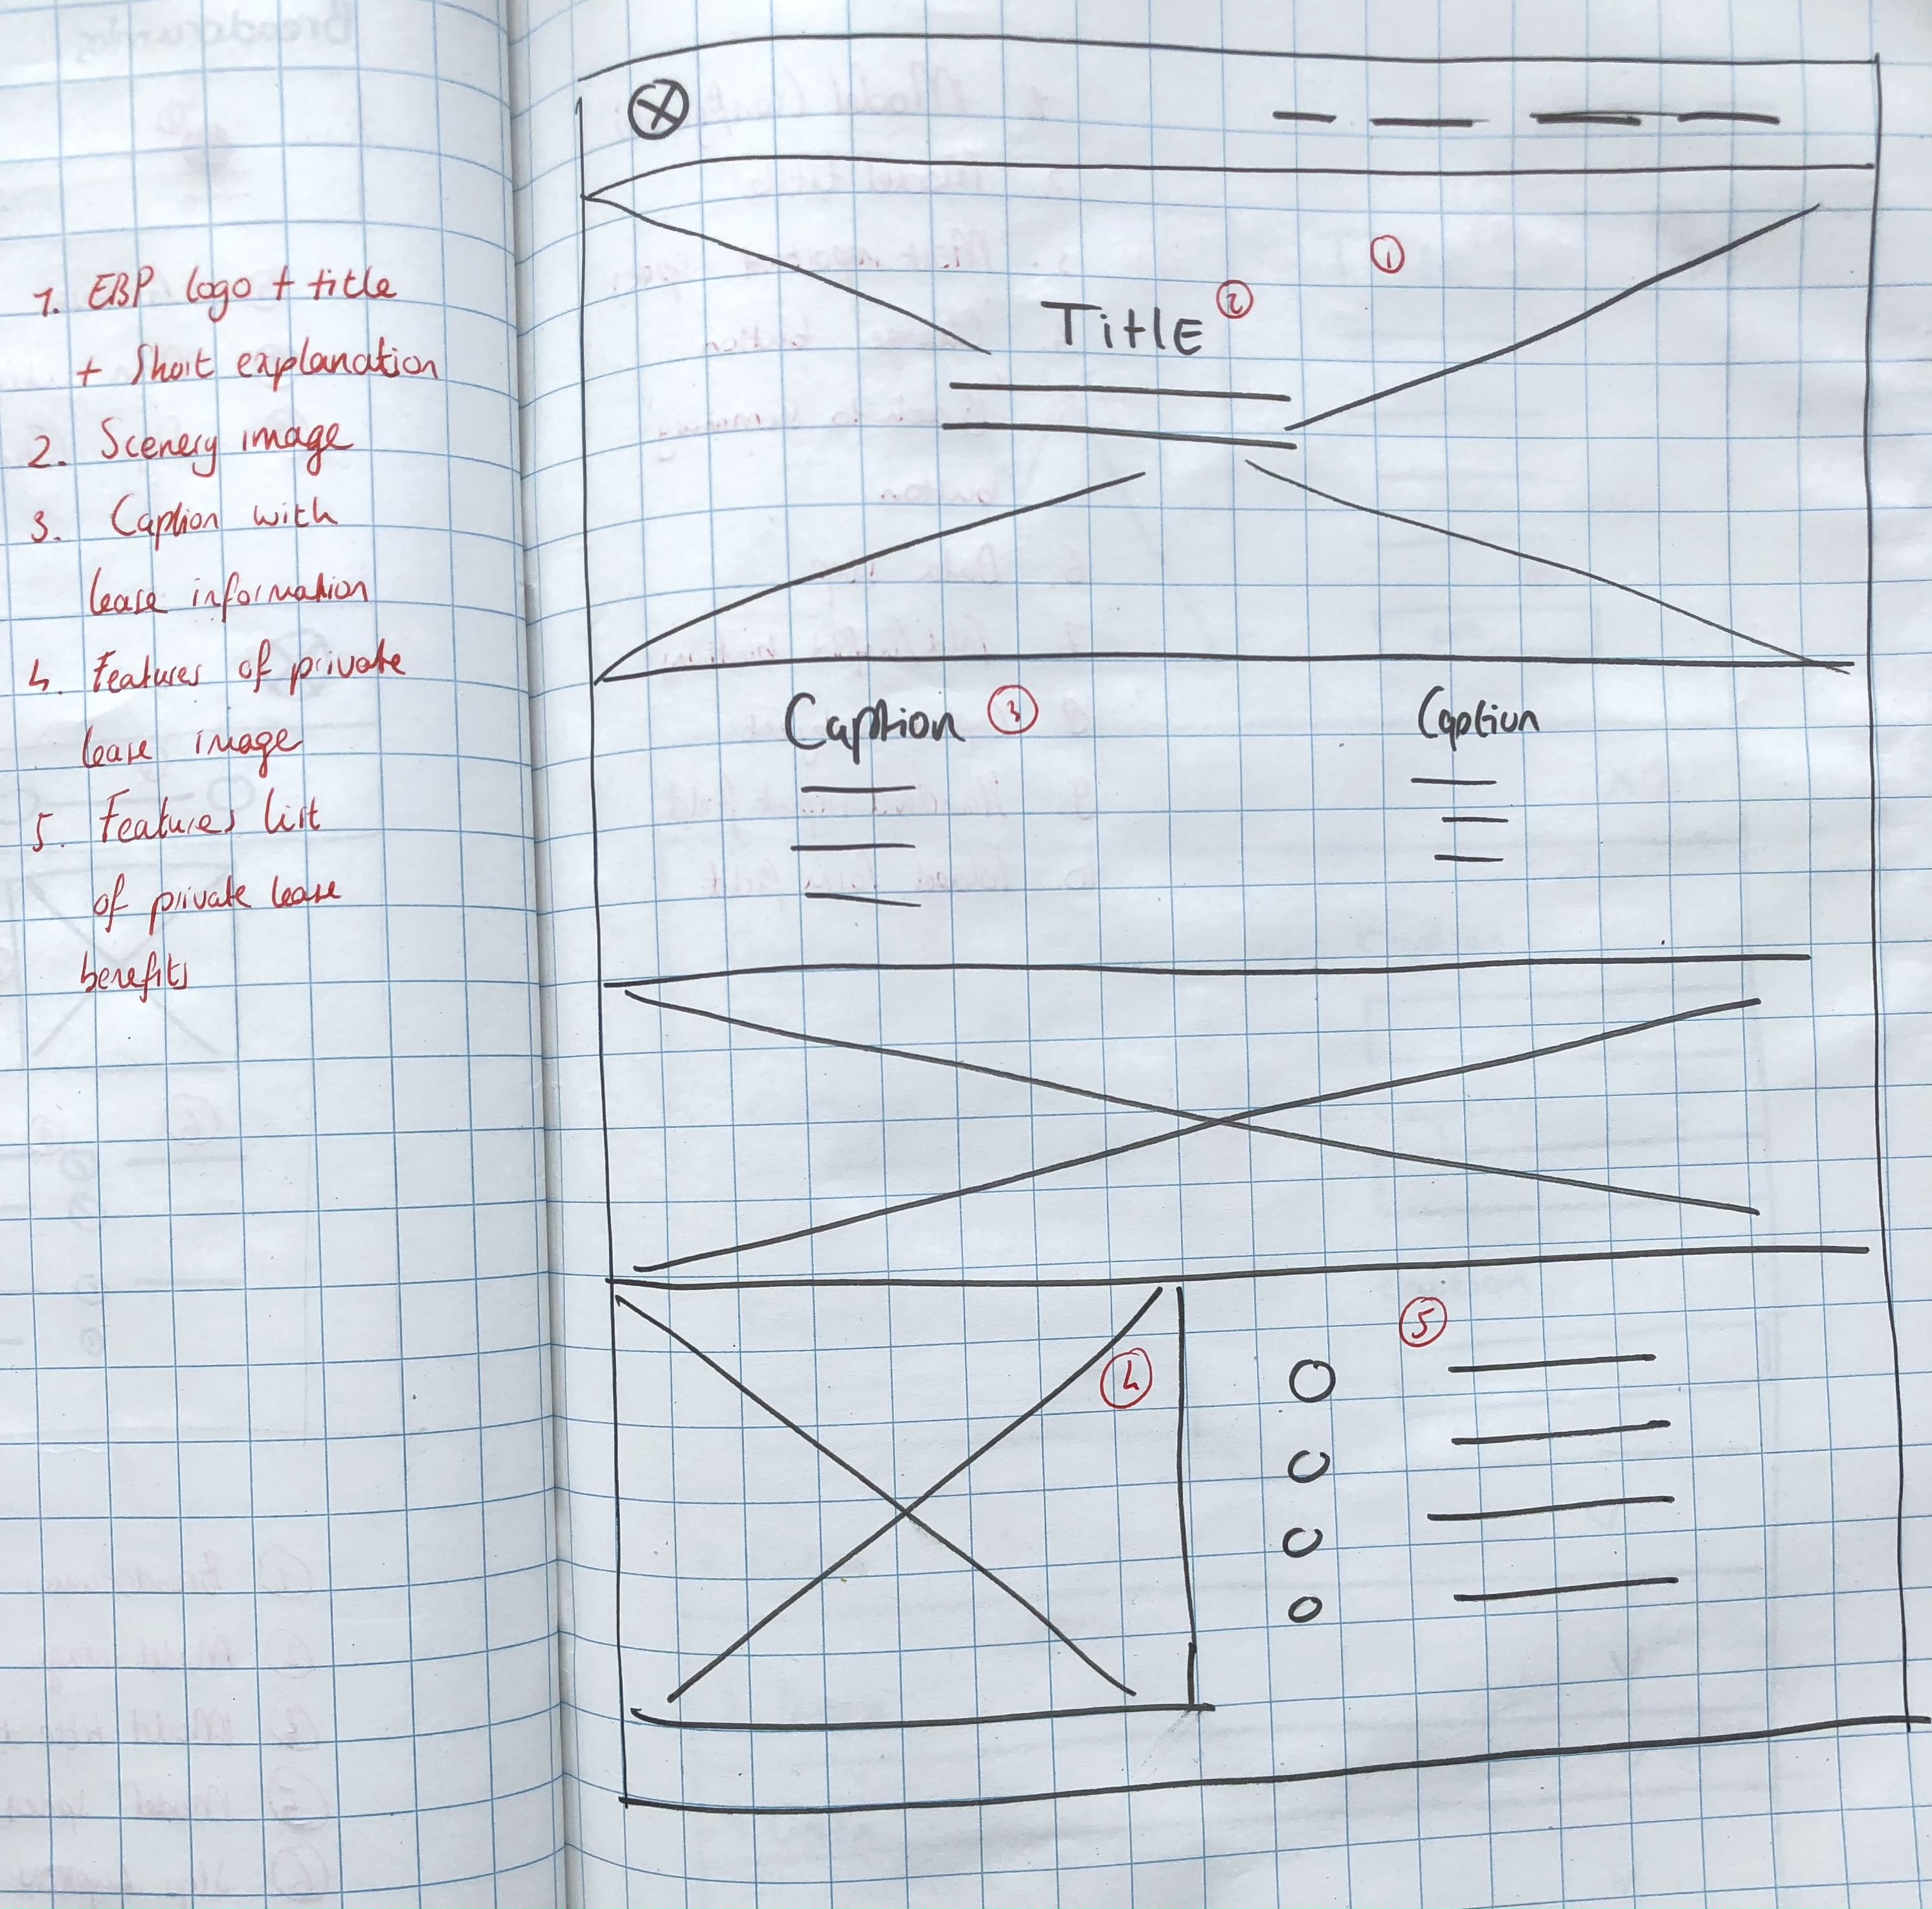 1. EBP logo + title
+ Short explanation
2. Scenery image
3. Caption with
lease information
4. Features of private
lease image
5. Features list
of private lease
benefits
1
Title 2
Caption 3
Caption
4
5